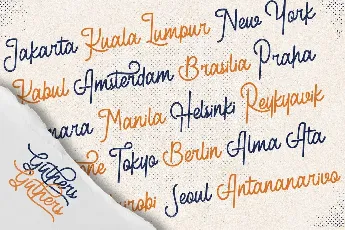 Jakarta Kuala Lumpur New York
Kabul Amsterdam Brasilia Praha
nara Manila Helsinki Reykyavik
ne Tokyo Berlin Alma Ata
robi Seoul Antananarivo
Guthers
Guthers